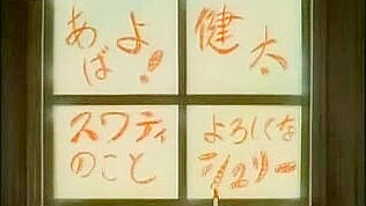 あばよ!
健太.
スワティ
のこと
よろしくな
シュリー